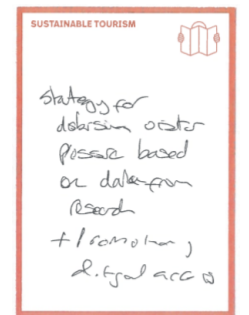 SUSTAINABLE TOURISM
strategy for
dispersing visitor
pressure based
on data from
research
+ promotion,
digital access